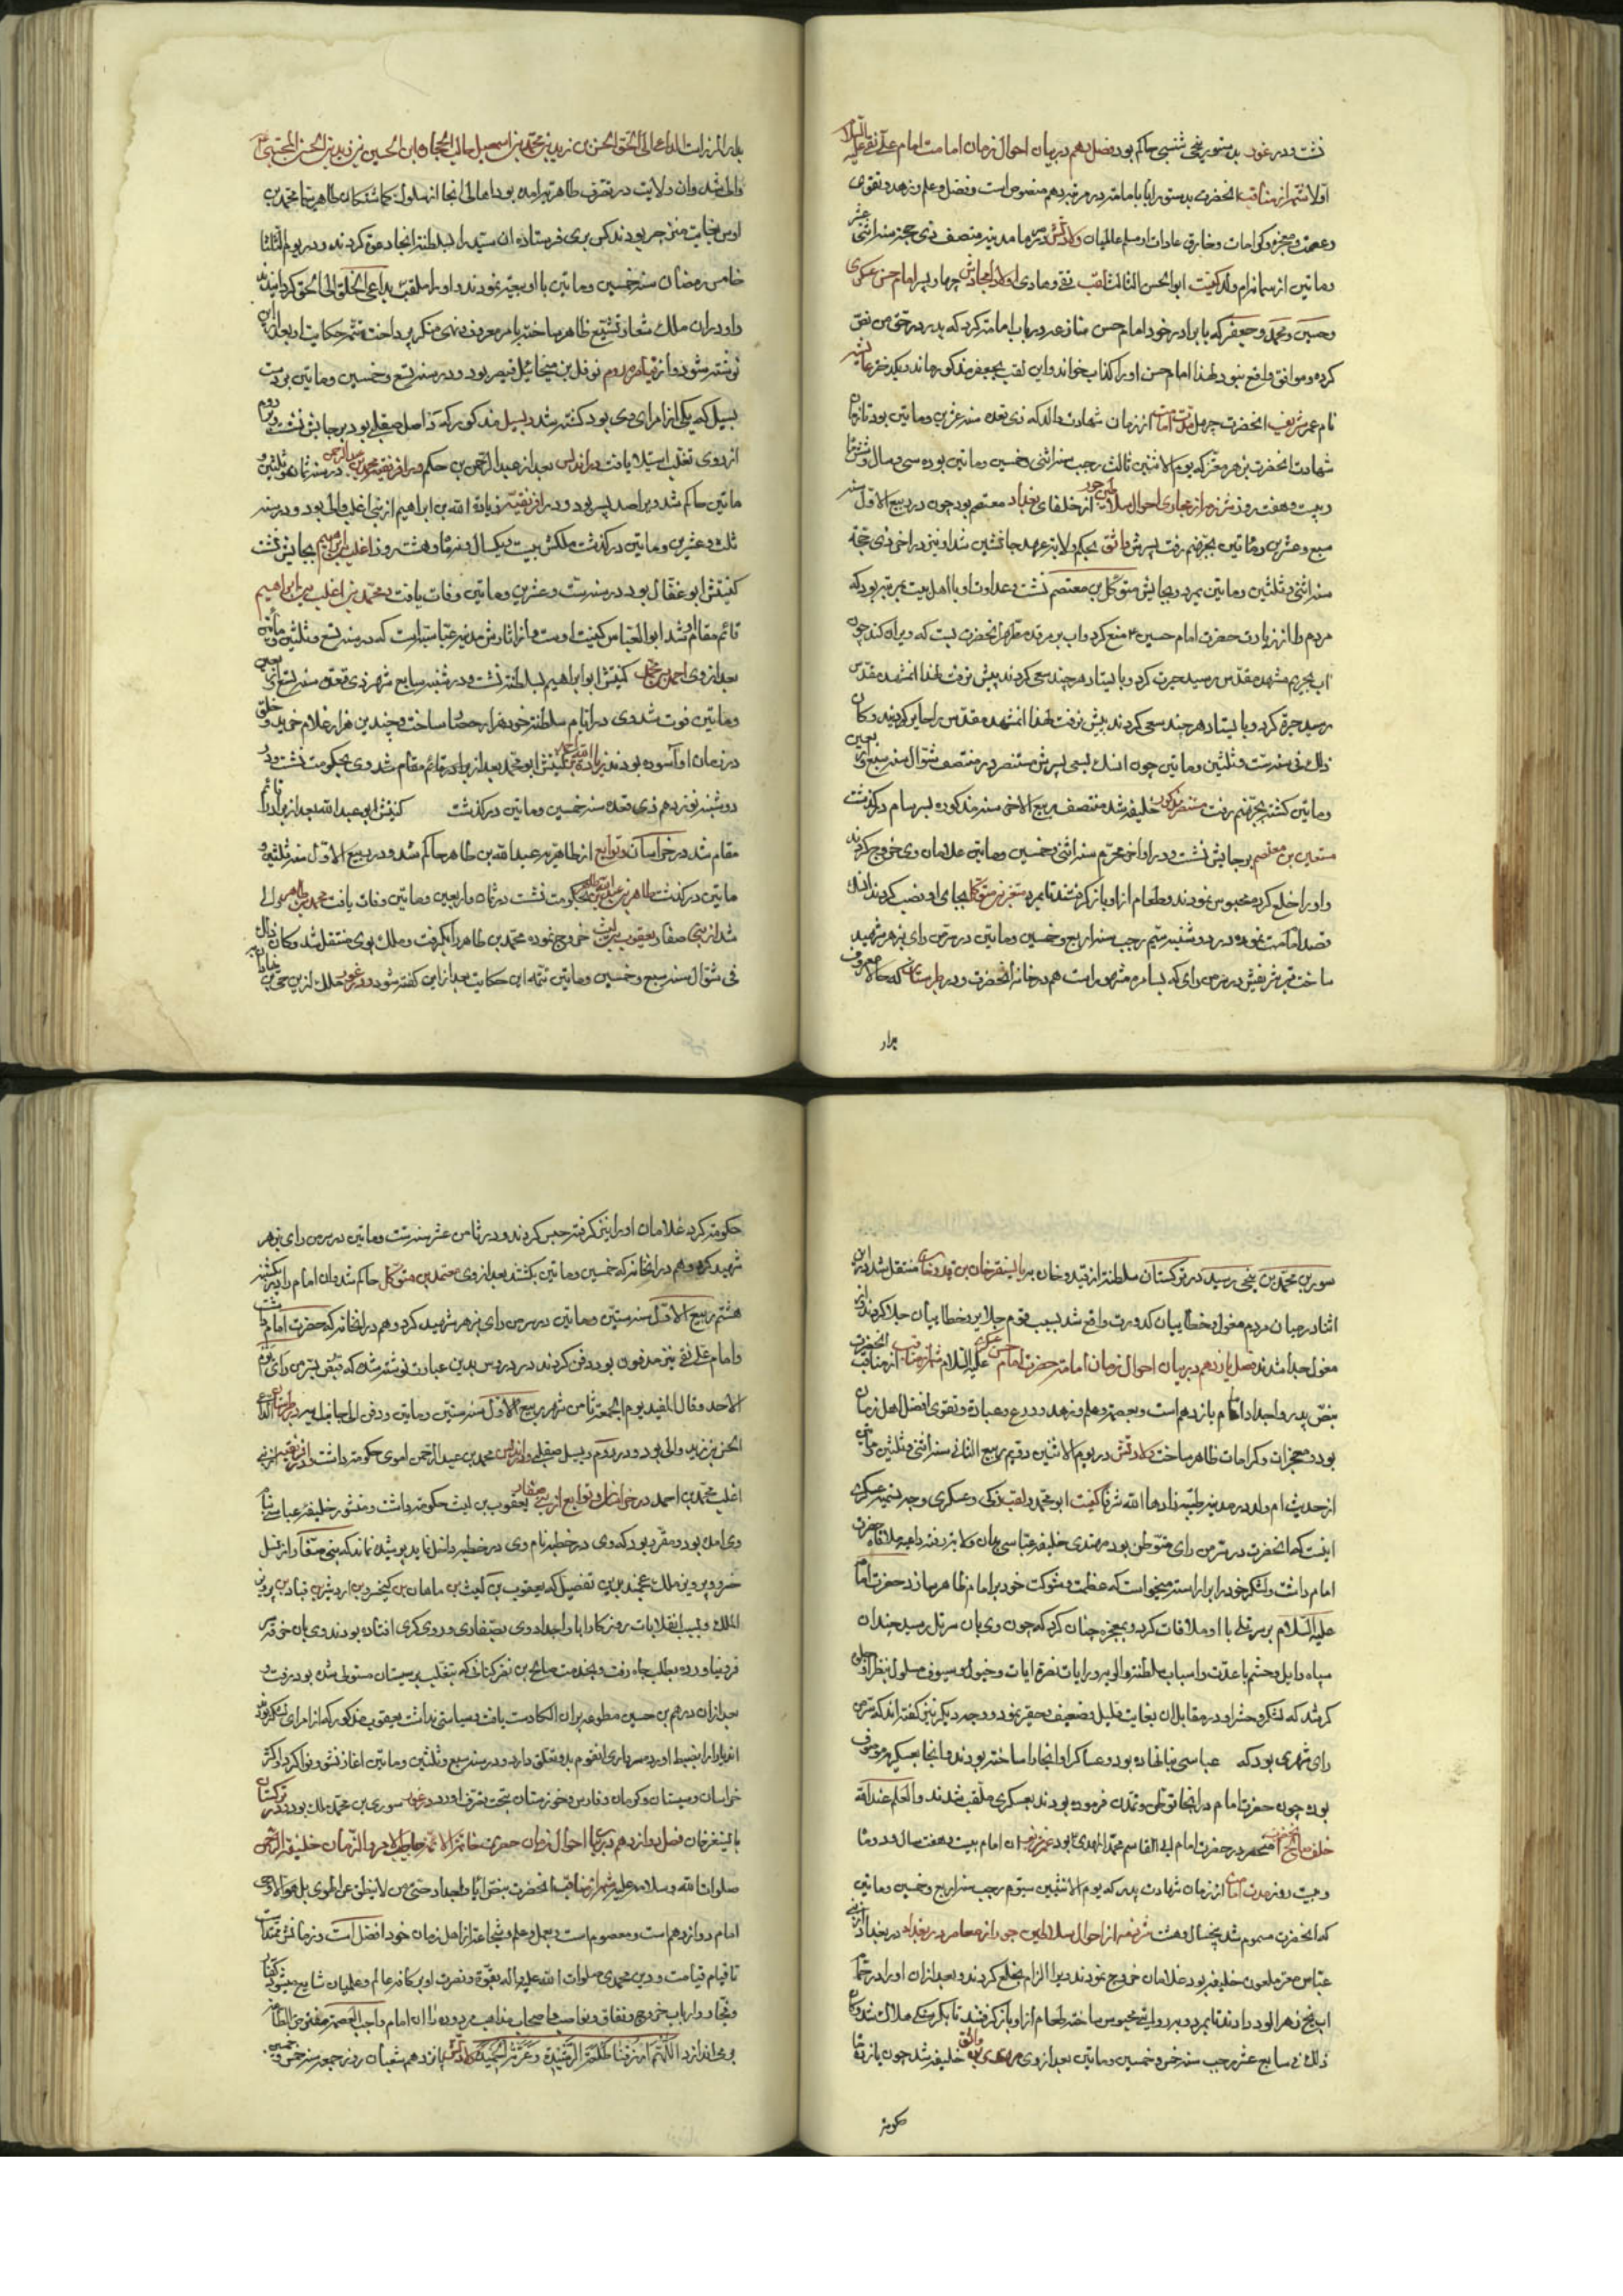 نشست و در غور بدستور بنجی شنسبی حاکم بود فصل دهم در بیان احوال زمان امامت امام علی نقی علیه السلام
اولا شمه از مناقب انحضرت بدستور ابا بامامت در مرتبه دهم منصوص است و فضل و علم و زهد و تقوی
و عصمت و معجزه و کرامات و خارق عادات او مسلم عالمیان ولادتش در مدینه منتصف ذی حجه سنه اثنی عشر
و ماتین از سمانه ام ولد کنیت ابوالحسن الثالث لقب نقی و هادی اولاد امجادش چهار پسر امام حسن عسکری
و حسین و محمد و جعفر که با برادر خود امام حسن منازعه در باب امامت کرد که پدر در حق من نص
کرده و موافق واقع نبود لهذا امام حسن او را کذاب خواند و این لقب بجعفر مذکور ماند و یکدختر عایشه
نام عمر شریف انحضرت چهل مدت امامت از زمان شهادت والد که ذی قعده سنه عشرین و ماتین بود تا زمان
شهادت انحضرت بزهر معتز که یوم الاثنین ثالث رجب سنه اثنی و خمسین و ماتین بوده سی و سال و شش ماه
و بیست و هفت روز شرذمه از مجاری احوال سلاطین جور از خلفای بغداد معتصم بود چون در ربیع الاول سنه
سبع و عشرین و ماتین بجهنم رفت پسرش واثق بحکم ولایت عهد جانشین شد او نیز در اخر ذی حجه
سنه اثنی و ثلثین و ماتین بمرد و بجایش متوکل بن معتصم نشست و عداوت او با اهل بیت بمرتبه بود که
مردم را از زیارت حضرت امام حسین ع منع کرد و اب بر مرقد مطهر انحضرت بست که ویران کند چون
اب بحریم مشهد مقدس رسید حیرت کرد و بایستاد هر چند سعی کردند پیش نرفت لهذا انمشهد مقدس
رسید حیرة کرد و بایستاد هر چند سعی کردند پیش نرفت لهذا انمشهد مقدس را حایر گویند و کان
ذلک فی سنه ست و ثلثین و ماتین چون انسک بسعی پسرش منتصر در منتصف شوال سنه سبع و اربعین
و ماتین کشته بجهنم رفت منتصر مذکور خلیفه شد منتصف ربیع الاخر سنه مذکوره بسرسام درگذشت
مستعین بن معتصم بر جایش نشست و در اواخر محرم سنه اثنی و خمسین و ماتین غلامان وی خروج کردند
و او را خلع کرده محبوس نمودند و طعام از او باز گرفتند تا بمرد معتز بن متوکل بجای او نصب کردند انسک
قصد امامت نموده در دوشنبه سیم رجب سنه اربع و خمسین و ماتین در سرمن رای بزهر شهید
ساخت قبر شریفش در سرمن رای که بسامره مشهور است هم در خانه انحضرت و در طبرستان که حالا معروف
بدار المرز است الداعی الی الحق الحسن بن زید بن محمد بن اسمعیل جالب الحجاره ابن الحسین بن زید بن الحسن المجتبی ع
والی شد و ان ولایت در تصرف طاهریه امده بود اهالی انجا از سلوک گماشتگان طاهریه محمد بن
اوس بغایت منزجر بودند کس بری فرستاده ان سید را بسلطنت انجا دعوة کردند و در یوم الثلثا
خامس رمضان سنه خمسین و ماتین با او بیعت نمودند و او را ملقب بداعی الخلق الی الحق گردانیدند
داود ران ملک شعار تشیع ظاهر ساخته بامر معروف و نهی منکر پرداخت تتمه حکایت او بعد از این
نوشته شود و از قیاصره روم نوفل بن میخائیل قیصر بود و در سنه تسع و خمسین و ماتین بر دست
بسیل که یکی از امرای وی بود کشته شد و بسیل مذکور که در اصل صقلبی بود بر جایش نشست و بر روم
از روی تغلب استیلا یافت در اندلس بعد از عبدالرحمن بن حکم محمد بن عبدالرحمن در سنه ثمان و ثلثین و
ماتین حاکم شد و یرا صد پسر بود و در افریقیه زیادة الله بن ابراهیم از بنی اغلب والی بود و در سنه
ثلث و عشرین و ماتین درگذشت ملکش بیست و یکسال و نه ماه و هشت روز اغلب بن ابراهیم بجایش نشست
کنیتش ابو عقال بود در سنه ست و عشرین و ماتین وفات یافت و محمد بن اغلب بن ابراهیم
قائم مقام او شد ابو العباس کنیت اوست و از اثارش مدینه عباسیه است که در سنه تسع و ثلثین و ماتین
بعد از وی احمد بن محمد کنیتش ابو ابراهیم بسلطنت نشست و در شنبه سابع شهر ذی قعده سنه تسع و اربعین
و ماتین فوت شد وی در ایام سلطنت خود هزار حصار ساخت و چندین هزار غلام خرید و خلق
در زمان او آسوده بودند زیادة الله بن کنیتش ابو محمد بعد از برادر قائم مقام شد وی بحکومت نشست و در
دوشنبه نوزدهم ذی قعده سنه خمسین و ماتین درگذشت کنیتش ابو عبدالله بعد از برادر قائم
مقام شد در خراسان و توابع از طاهریه عبدالله بن طاهر حاکم شد و در ربیع الاول سنه ثلثین و
ماتین درگذشت طاهر بن عبدالله بحکومت نشست در ثمان و اربعین و ماتین وفات یافت محمد بن طاهر والی
شد از بنی صفار یعقوب بن لیث خروج نموده محمد بن طاهر را بگرفت و ملک بوی منتقل شد و کان ذلک
فی شوال سنه سبع و خمسین و ماتین تتمه این حکایت بعد از این گفته شود و در غور ملک از بن
سوری بن محمد بن بنجی رسید در ترکستان سلطنت از قیدو خان به بایسنقر خان بن قیدو خان منتقل شد در این
اثنا در میان مردم مغول و خطاییان کدورت واقع شد بسبب قوم جلایر و خطاییان جلا کردند از
مغول جدا شدند فصل یازدهم در بیان احوال زمان امامت حضرت امام حسن عسکری علیه السلام شمه از مناقب انحضرت
بنص پدر و اجداد امام یازدهم است و بعصمت و علم و زهد و ورع و عبادة و تقوی افضل اهل زمان
بود و معجزات و کرامات ظاهر ساخت ولادتش در یوم الاثنین دویم ربیع الثانی سنه اثنی و ثلثین و ماتین
از حدیث ام ولد در مدینه طیبه زادها الله شرفا کنیت ابو محمد و لقب زکی و عسکری وجه تسمیه عسکری
اینست که انحضرت در سرمن رای متوطن بود مهتدی خلیفه عباسی بان ولایت رفته داعیه ملاقاة حضرت
امام داشت و لشکر خود را براراسته میخواست که عظمت و شوکت خود بر امام ظاهر سازد حضرت امام
علیه السلام بر سر تلی با او ملاقات کرد و بمعجزه چنان کرد که چون وی بان سر تل رسید چندان
سپاه و ایل و حشم با عدت و اسباب سلطنت والویه و رایات نصرة ایات و خیول و سیوف مسلول بنظر او
کرشد که لشکر و حشر او در مقابل ان بغایت قلیل و ضعیف و حقیر نمود و وجه دیگر نیز گفته اند که سرمن
رای شهری بود که عباسی بنا نهاده بود و عساکر او انجا را ساخته بودند و انجا بعسکر موصوف
بوده چون حضرت امام در انجا توطن و تمدن فرموده بودند بعسکری ملقب شدند و العلم عند الله
خلف انحضرت منحصر در حضرت امام ابی القاسم محمد المهدی ع بود عمر شریف ان امام بیست و هفت سال و دو ماه
و بیست روز مدت امامت از زمان شهادت پدر که یوم الاثنین سیوم رجب سنه اربع و خمسین و ماتین
که انحضرت مسموم شد پنجسال و هشت شرذمه از احوال سلاطین جور از معاصر در بغداد از بنی
عباس معتز ملعون خلیفه بود غلامان خروج نمودند و یرا الزام بخلع کردند و بعد از ان او را در حمام
اب یخ زهر الود دادند تا بمرد و بروایتی محبوس ساخته طعام از او باز گرفتند تا بگرسنگی هلاک شد و کان
ذلک فی سابع عشر رجب سنه خمس و خمسین و ماتین بعد از وی مهتدی بن واثق خلیفه شد چون یازده ماه
حکومت کرد غلامان او را نیز گرفته حبس کردند و در ثامن عشر سنه ست و ماتین در سرمن رای بزهر
شهید کرد و هم در انخانه که خمسین و ماتین بکشتند بعد از وی معتمد بن متوکل حاکم شد و ان امام را در یکشنبه
هشتم ربیع الاول سنه ستین و ماتین در سرمن رای بزهر شهید کرد و هم در انخانه که حضرت امام داشت
و امام علی نقی نیز مدفون بود دفن کردند در دروس بدین عبارت نوشته شده که قبض بسرمن رای یوم
الاحد و قال المفید یوم الجمعه ثامن شهر ربیع الاول سنه ستین و ماتین و دفن الی جانب ابیه در طبرستان الداعی
الحسن بن زید والی بود و در روم بسیل صقلبی و اندلس محمد بن عبدالرحمن اموی حکومت داشت و در افریقیه از بنی
اغلب محمد بن احمد در خراسان و توابع از بنی صفار یعقوب بن لیث حکومت داشت و منشور خلیفه عباسی بنام
وی امده بود و مقرر بود که وی در خطبه نام وی در خطبه داخل نماید پوشیده نماند که بنی صفار از نسل
خسرو پرویز ملک عجمند باین تفضیل که یعقوب بن لیث بن ماهان بن کیخسرو بن اردشیر بن قباد بن پرویز
الملک و بسبب انقلابات روزگار ابا و اجداد وی بصفاری و رویگری افتاده بودند وی بان حرفه سر
فرو نیاورده بطلب جاه رفت و بخدمت صالح بن نصر کنانی که بتغلب بر سیستان مستولی شده بود رفت و
بعد از ان درهم بن حسین مطوعه بر ان الکا دست یافت و سیاستی نداشت یعقوب مذکور که از امرای لشکر بود
اندیار را بضبط اورده سرداری انقوم بدو تعلق دارد و در سنه سبع و ثلثین و ماتین اغاز نشو و نما کرد و اکثر
خراسان و سیستان و کرمان و فارس و خوزستان بتحت تصرف اورد در غور سوری بن محمد ملک بود و در ترکستان
بایسنغر خان فصل دوازدهم در بیان احوال زمان حضرت خاتم الائمه صاحب الامر و الزمان خلیفة الرحمن
صلوات الله و سلامه علیه شمه از مناقب انحضرت بنص ابا و اجداد حتی من لا ینطق عن الهوی بل هو الا وحی
امام دوازدهم است و معصوم است و بعمل و علم و شجاعت از اهل زمان خود افضل است و زمانش ممتد است
تا قیام قیامت و دین محمدی صلوات الله علیه واله بقوة و نصرت او بر کافه عالم و عالمیان شایع میشود کفار
و فجار و ارباب خروج و نفاق و نواصب و اصحاب مذاهب مردوده را ان امام واجب العصمه مفترض الطاعه
بر می اندازد اللهم ارزقنا طلعته الرشیدة و غرته الحمیدة ولادتش پانزدهم شعبان روز جمعه سنه خمس و خمسین